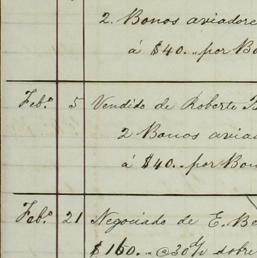 2. Bonos aviadore
á $40.. por Bo
Feb.o 5 Vendido de Roberto B
2 Bonos avia
á $40.. por Bon
Feb.o 21 Negociado de E. Be
$160.. @ 30% sobre